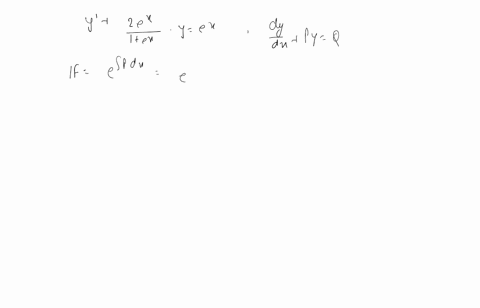 y' + 2e^x / 1+e^x · y = e^x · dy/dx + Py = Q
IF = e^∫P dx = e